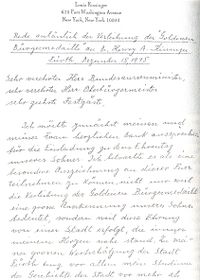 Louis Kissinger
615 Fort Washington Avenue
New York, New York 10040
Rede anlässlich der Verleihung der "Goldenen
Bürgermedaille" an Dr. Henry A. Kissinger
Fürth, Dezember 15, 1975
Sehr verehrter Herr Bundesaussenminister,
sehr verehrter Herr Oberbürgermeister
sehr geehrte Festgäste,
Ich möchte zunächst meinen und
meiner Frau herzlichen Dank aussprechen
für die Einladung zu dem Ehrentag
unseres Sohnes. Ich betrachte es als eine
besondere Auszeichnung an dieser Feier
teilnehmen zu können, nicht nur weil
die Verleihung der Goldenen Bürgermedaille
eine grosse Anerkennung unseres Sohnes
bedeutet, sondern weil diese Ehrung
von einer Stadt erfolgt, die
meinem Herzen nahe stand. In
der Geschichte der Stadt vor mehr als